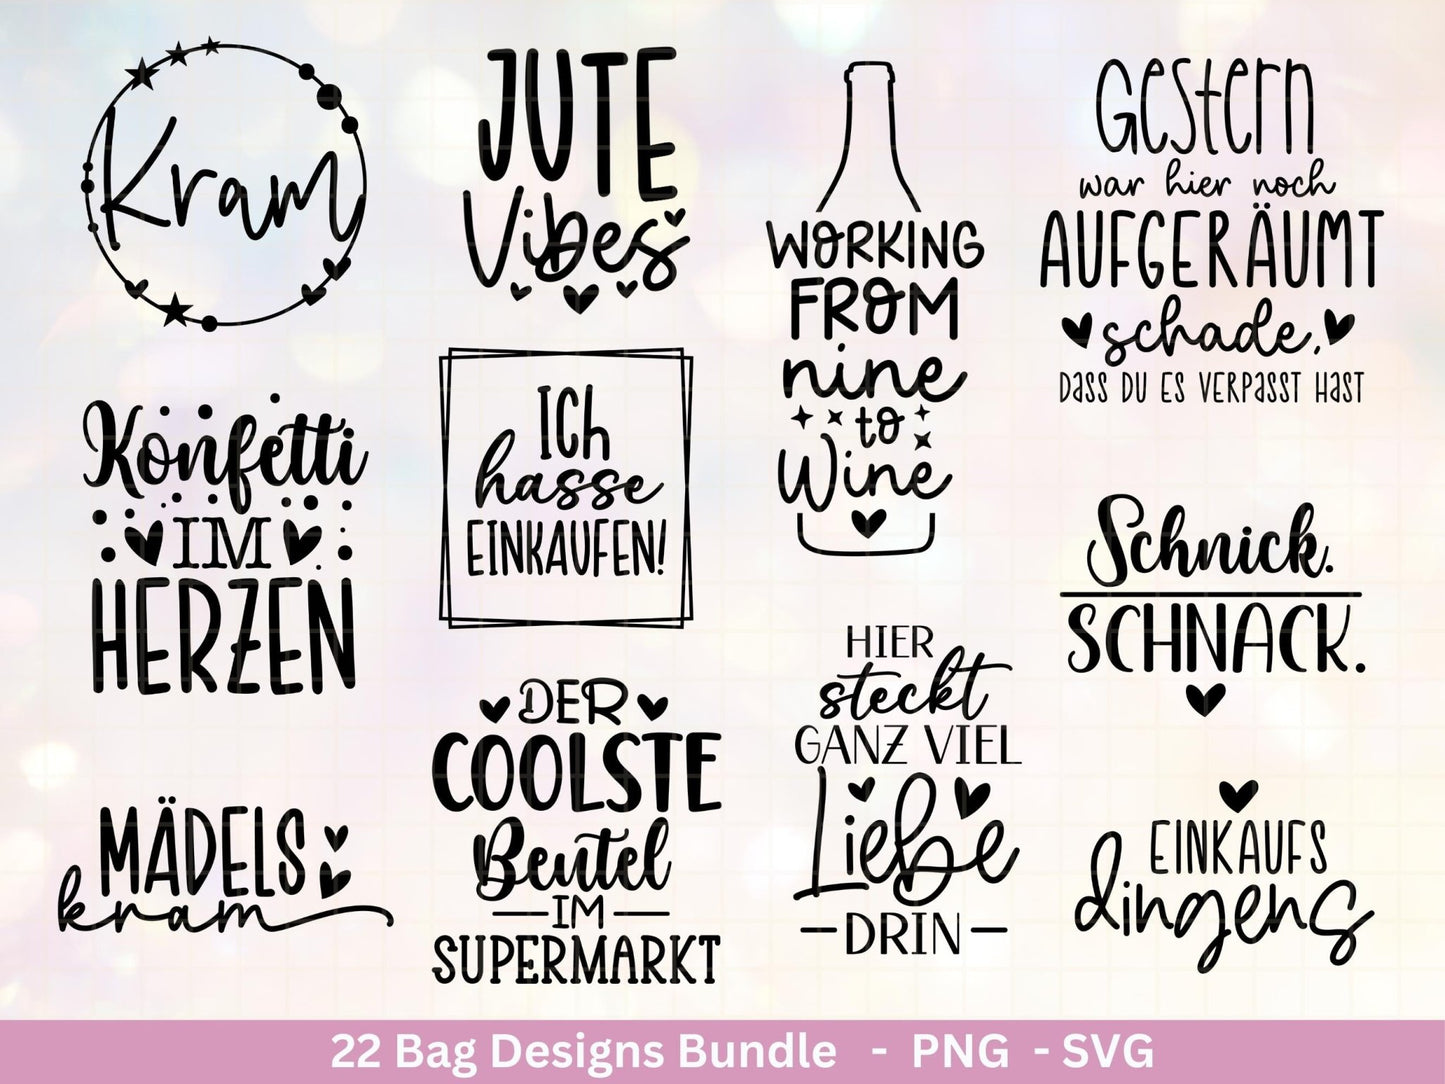 Kram
JUTE
Vibes
WORKING
FROM
nine
to
Wine
Gestern
war hier noch
AUFGERÄUMT
schade,
DASS DU ES VERPASST HAST
Konfetti
IM
HERZEN
ICh
hasse
EINKAUFEN!
Schnick.
SCHNACK.
MÄDELS
kram
DER
COOLSTE
Beutel
IM
SUPERMARKT
HIER
steckt
GANZ VIEL
Liebe
DRIN
EINKAUFS
dingens
22 Bag Designs Bundle - PNG - SVG